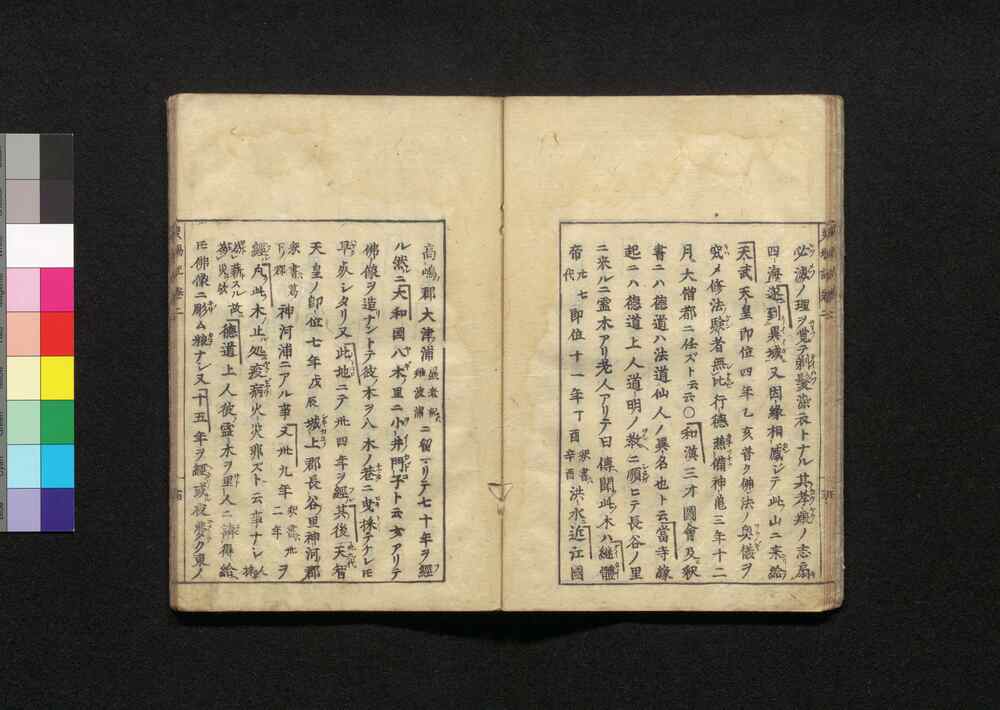 必滅ノ理ヲ覚テ剃髪染衣トナル其孝ノ志
四海遊到異域又因縁相感ジテ此山ニ来給
天武天皇即位四年乙亥普ク佛法ノ奥儀ヲ
究メ修法験者無比行德兼備神亀三年十二
月大僧都ニ任ズト云云〇和漢三才圖會及釈
書ニハ德道ハ法道仙人ノ異名也ト云當寺縁
起ニハ德道上人道明ノ教ニ順ヒテ長谷ノ里
ニ来ルニ霊木アリ老人アリテ曰傳聞此木ハ継體
帝廿七代即位十一年丁酉釈書辛酉洪水近江國
高嶋郡大津浦ニ留マリテ七十年ヲ經
ル然ニ大和國八木里ニ小井門子ト云女アリテ
佛像ヲ造ナントテ彼木ヲ八木ノ巷ニ曳捨テケレ𪜈
早亥シタリ又此地ニテ卅四年ヲ經其後天智
天皇ノ即位七年戊辰城上郡長谷里神河郡
神河浦ニアル事又卅九年ヲ
經此木止処疫病火災邪ズト云事ナシ
故德道上人彼霊木ヲ里人ニ請得給
𪜈佛像ニ彫ム粮ナシ又十五年ヲ經或夜東ノ